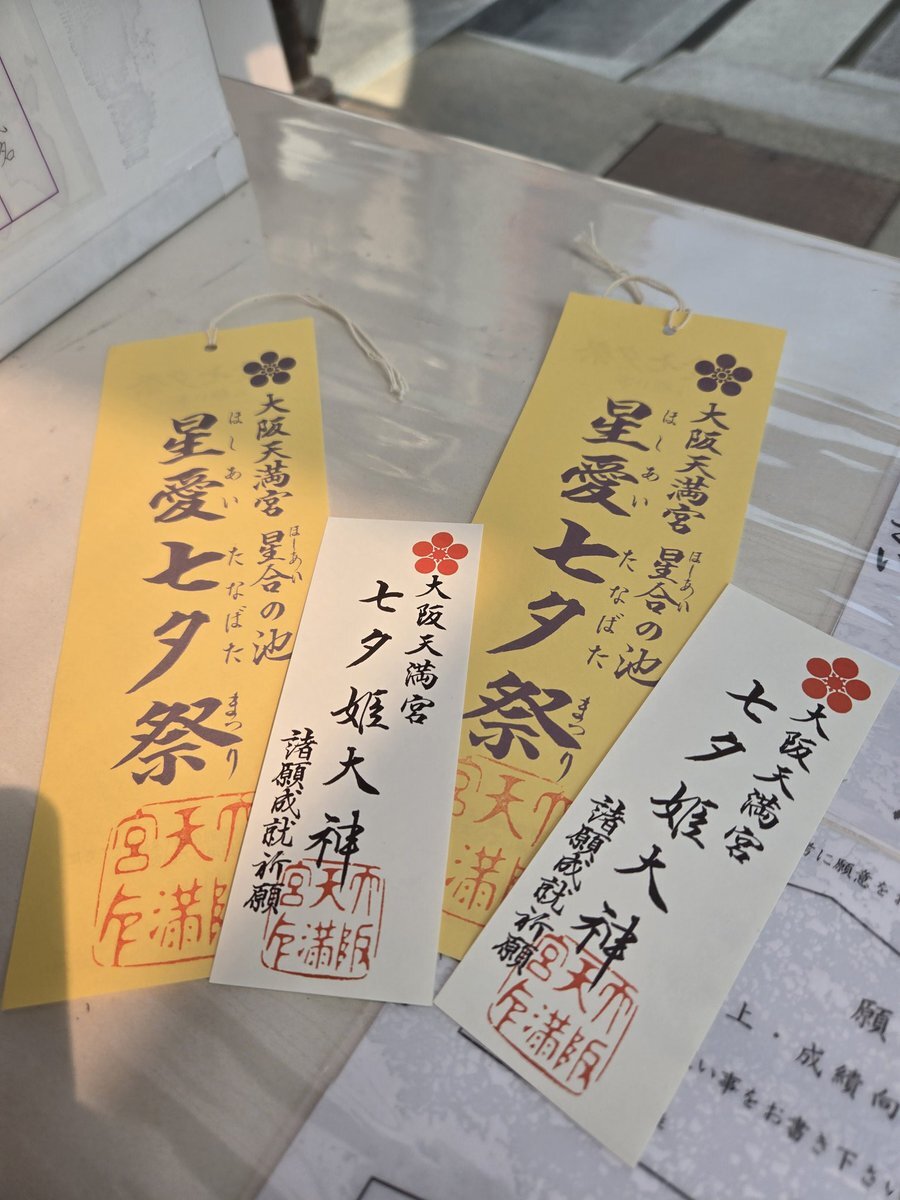 大阪天満宮 星合の池
ほしあい
星愛七夕祭
ほしあい たなばた まつり
大阪天満宮
七夕姫大神
諸願成就祈願
大阪天満宮
大阪天満宮 星合の池
ほしあい
星愛七夕祭
ほしあい たなばた まつり
大阪天満宮
七夕姫大神
諸願成就祈願
大阪天満宮
に願意を
願
上・成績向
い事をお書き下さい